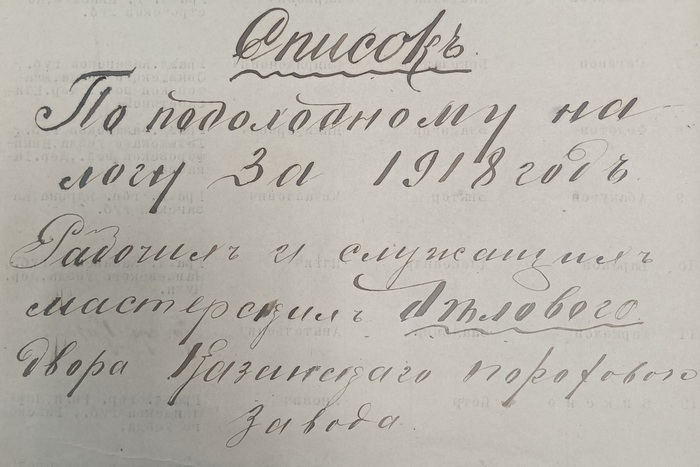 Списокъ
По подоходному на
логу за 1918 годъ
Рабочихъ и служащихъ
мастерскихъ Пжлового
двора Казанскаго порохового
завода.